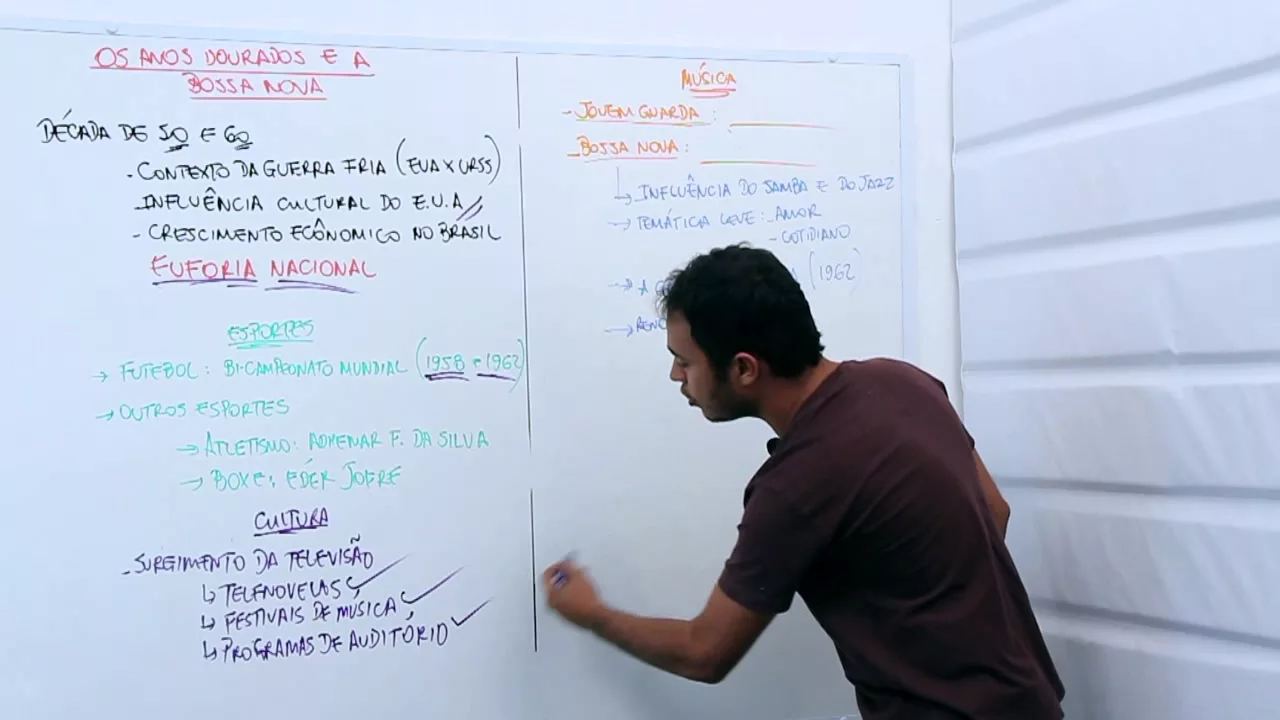 OS ANOS DOURADOS E A
BOSSA NOVA
DÉCADA DE 50 E 60
- CONTEXTO DA GUERRA FRIA (EUA X URSS)
- INFLUÊNCIA CULTURAL DO E.U.A
- CRESCIMENTO ECÔNOMICO NO BRASIL
EUFORIA NACIONAL
ESPORTES
→ FUTEBOL: BI-CAMPEONATO MUNDIAL (1958 e 1962)
→ OUTROS ESPORTES
→ ATLETISMO: ADHENAR F. DA SILVA
→ BOXE: EDÉR JOFRE
CULTURA
- SURGIMENTO DA TELEVISÃO
↳ TELENOVELAS;
↳ FESTIVAIS DE MUSICA;
↳ PROGRAMAS DE AUDITÓRIO
MÚSICA
- JOVEM GUARDA:
- BOSSA NOVA:
↳ INFLUÊNCIA DO SAMBA E DO JAZZ
→ TEMÁTICA LEVE: - AMOR
- COTIDIANO
→ A (1962)
→